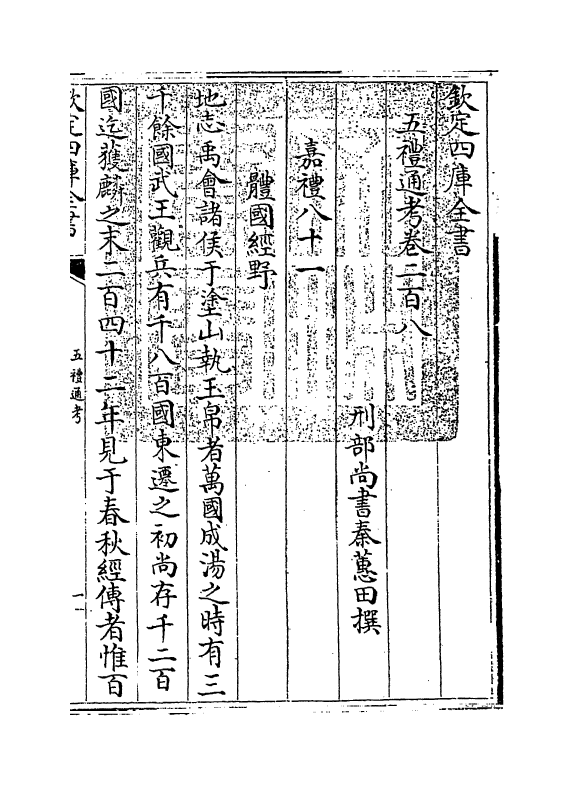 欽定四庫全書
五禮通考卷二百八
刑部尚書秦蕙田撰
嘉禮八十一
體國經野
地志禹會諸侯于塗山執玉帛者萬國成湯之時有三
千餘國武王觀兵有千八百國東遷之初尚存千二百
國迄獲麟之末二百四十二年見于春秋經傳者惟百
欽定四庫全書
五禮通考
一